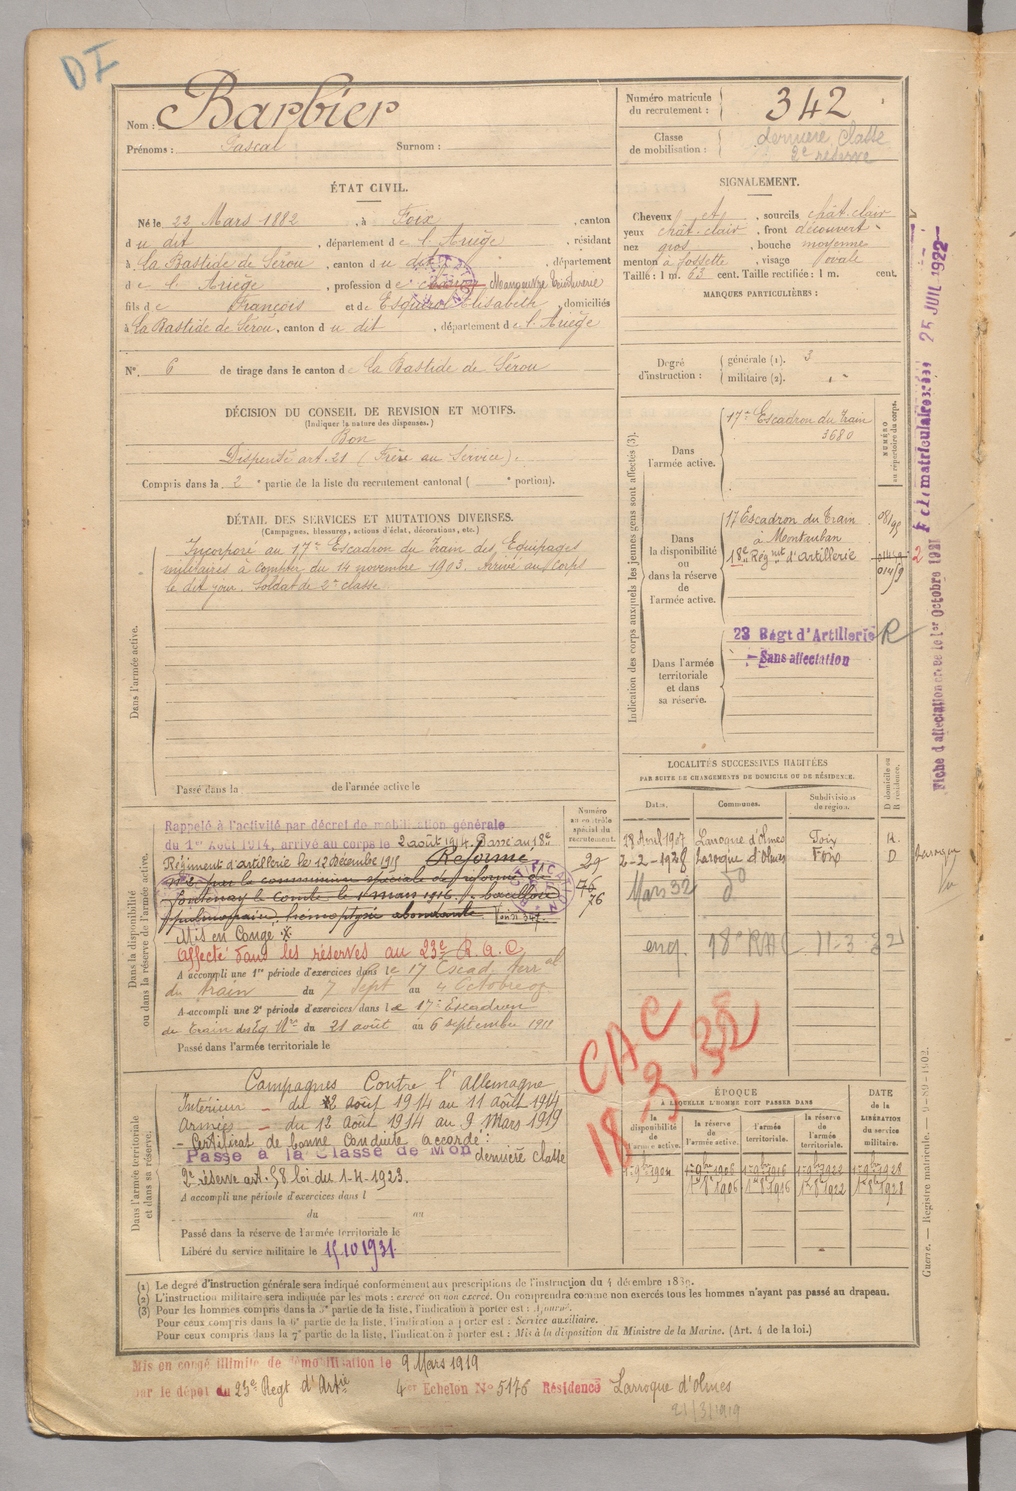 DI
Nom : Barbier
Prénoms : Pascal Surnom :
Numéro matricule du recrutement : 342
Classe de mobilisation : dernière classe 2e réserve
ÉTAT CIVIL.
Né le 22 Mars 1882, à Foix, canton
du dit, département de l'Ariège, résidant
à La Bastide de Sérou, canton du dit, département
de l'Ariège, profession de
fils de François et de Esquirol Elisabeth, domiciliés
à La Bastide de Sérou, canton du dit, département de l'Ariège
N°. 6 de tirage dans le canton de La Bastide de Sérou
DÉCISION DU CONSEIL DE REVISION ET MOTIFS.
(Indiquer la nature des dispenses.)
Bon
Dispensé art. 21 (Frère au Service).
Compris dans la 2e partie de la liste du recrutement cantonal ( e portion).
DÉTAIL DES SERVICES ET MUTATIONS DIVERSES.
(Campagnes, blessures, actions d'éclat, décorations, etc.)
Dans l'armée active.
Incorporé au 17e Escadron du Train des Équipages
militaires à compter du 14 novembre 1903. Arrivé au Corps
le dit jour. Soldat de 2e classe
Passé dans la de l'armée active le
SIGNALEMENT.
Cheveux et, sourcils chât. clair
yeux chât. clair, front découvert
nez gros, bouche moyenne
menton à fossette, visage ovale
Taille : 1 m. 63 cent. Taille rectifiée : 1 m. cent.
MARQUES PARTICULIÈRES :
Degré d'instruction : générale (1). 3
militaire (2).
Indication des corps auxquels les jeunes gens sont affectés (3).
NUMÉRO au répertoire du corps.
Dans l'armée active.
17e Escadron du Train
3680
Dans la disponibilité ou dans la réserve de l'armée active.
17 Escadron du Train
à Montauban
18e Régmt d'Artillerie
Dans l'armée territoriale et dans sa réserve.
23 Régt d'Artillerie R
Sans affectation
LOCALITÉS SUCCESSIVES HABITÉES
PAR SUITE DE CHANGEMENTS DE DOMICILE OU DE RÉSIDENCE.
Dates. Communes. Subdivisions de région. D domicile ou R résidence.
28 Avril 1907 Laroque d'Olmes Foix R.
2-2-1928 Laroque d'Olmes Foix D
Mars 32 do
18e RA 11-3-32
Dans la disponibilité ou dans la réserve de l'armée active.
Numéro au contrôle spécial du recrutement.
29
76
76
Rappelé à l'activité par décret de mobilisation générale
du 1er Août 1914, arrivé au corps le 2 août 1914. Passé au 18e
Régiment d'artillerie le 12 Décembre 1915 Réformé
n°2 par la commission spéciale de réforme de
Fontenay le Comte le 1 mars 1916 p. bacillose
pulmonaire, hémoptysie abondante
Mis en Congé
Affecté dans les réserves au 23e R.A.C.
A accompli une 1re période d'exercices dans le 17 Escad. territal
du train du 7 Sept au 4 Octobre 07
A accompli une 2e période d'exercices dans le 17e Escadron
de Train des Eq. Mres du 21 août au 6 septembre 1911
Passé dans l'armée territoriale le
CAC
18 3 38
Dans l'armée territoriale et dans sa réserve.
Campagnes Contre l'Allemagne
Intérieur - du 2 août 1914 au 11 août 1914
Armées - du 12 août 1914 au 9 Mars 1919
- Certificat de bonne Conduite accordé :
Passé à la Classe de Mon dernière classe
2e réserve art. 58 loi du 1-4-1923.
A accompli une période d'exercices dans l
du au
Passé dans la réserve de l'armée territoriale le
Libéré du service militaire le 15.10.1931
ÉPOQUE
À LAQUELLE L'HOMME DOIT PASSER DANS
la disponibilité de l'armée active. la réserve de l'armée active. l'armée territoriale. la réserve de l'armée territoriale.
DATE de la LIBÉRATION du service militaire.
1er 8bre 1906 1er 8bre 1916 1er 8bre 1922 1er 8bre 1928
(1) Le degré d'instruction générale sera indiqué conformément aux prescriptions de l'instruction du 4 décembre 1889.
(2) L'instruction militaire sera indiquée par les mots : exercé ou non exercé. On comprendra comme non exercés tous les hommes n'ayant pas passé au drapeau.
(3) Pour les hommes compris dans la 5e partie de la liste, l'indication à porter est : Ajourné.
Pour ceux compris dans la 6e partie de la liste, l'indication à porter est : Service auxiliaire.
Pour ceux compris dans la 7e partie de la liste, l'indication à porter est : Mis à la disposition du Ministre de la Marine. (Art. 4 de la loi.)
Mis en congé illimité de démobilisation le 9 Mars 1919
par le dépot du 23e Regt d'Artie 4e Echelon No 5176 Résidence Larroque d'olmes
21/3/1919
Fiche d'affectation créée le 1er Octobre 1921
Fiche matriculaire créée 25 JUIL 1922
Guerre. — Registre matricule. — 9-89-1902.